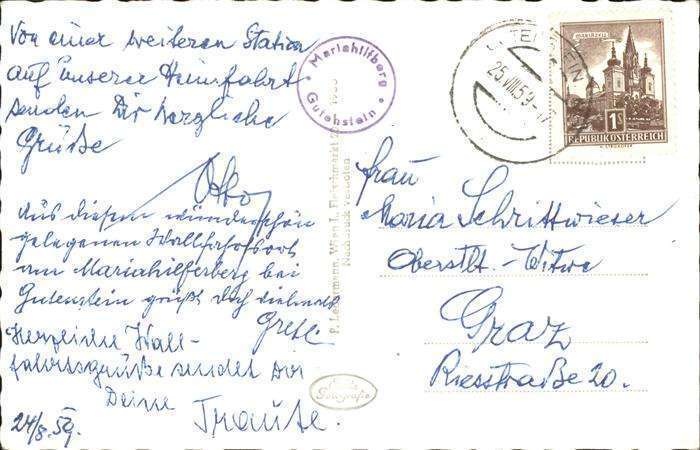 Von einer weiteren Station
auf unserer Heimfahrt
senden Dir herzliche
Grüße
Otto
Aus diesem wunderschön
gelegenen Wallfahrtsort
am Mariahilferberg bei
Gutenstein grüßt Dich vielmals
Grete
Herzliche Wall-
fahrtsgrüße sendet Dir
Deine
Traute.
24/8. 59.
Mariahilfberg
Gutenstein
25.VIII.59
MARIAZELL
1S
REPUBLIK ÖSTERREICH
Wien I, Fleischmarkt
Nachdruck verboten
Frau
Maria Schrittwieser
Oberstlt.-Witwe
Graz
Riesstraße 20.